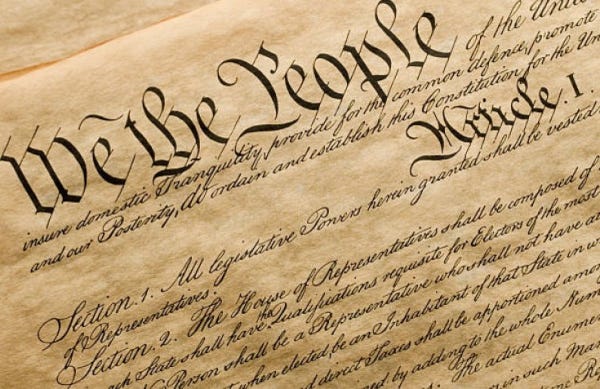 We the People of the Unite
insure domestic Tranquility, provide for the common defence, promote
and our Posterity, do ordain and establish this Constitution for the Un
Article. I.
Section. 1. All legislative Powers herein granted shall be vested
of Representatives.
Section. 2. The House of Representatives shall be composed of
ach State shall have the Qualifications requisite for Electors of the most
Person shall be a Representative who shall not have at
when elected, be an Inhabitant of that State in w
direct Taxes shall be apportioned amon
by adding to the whole Num
The actual Enumer
in such Man